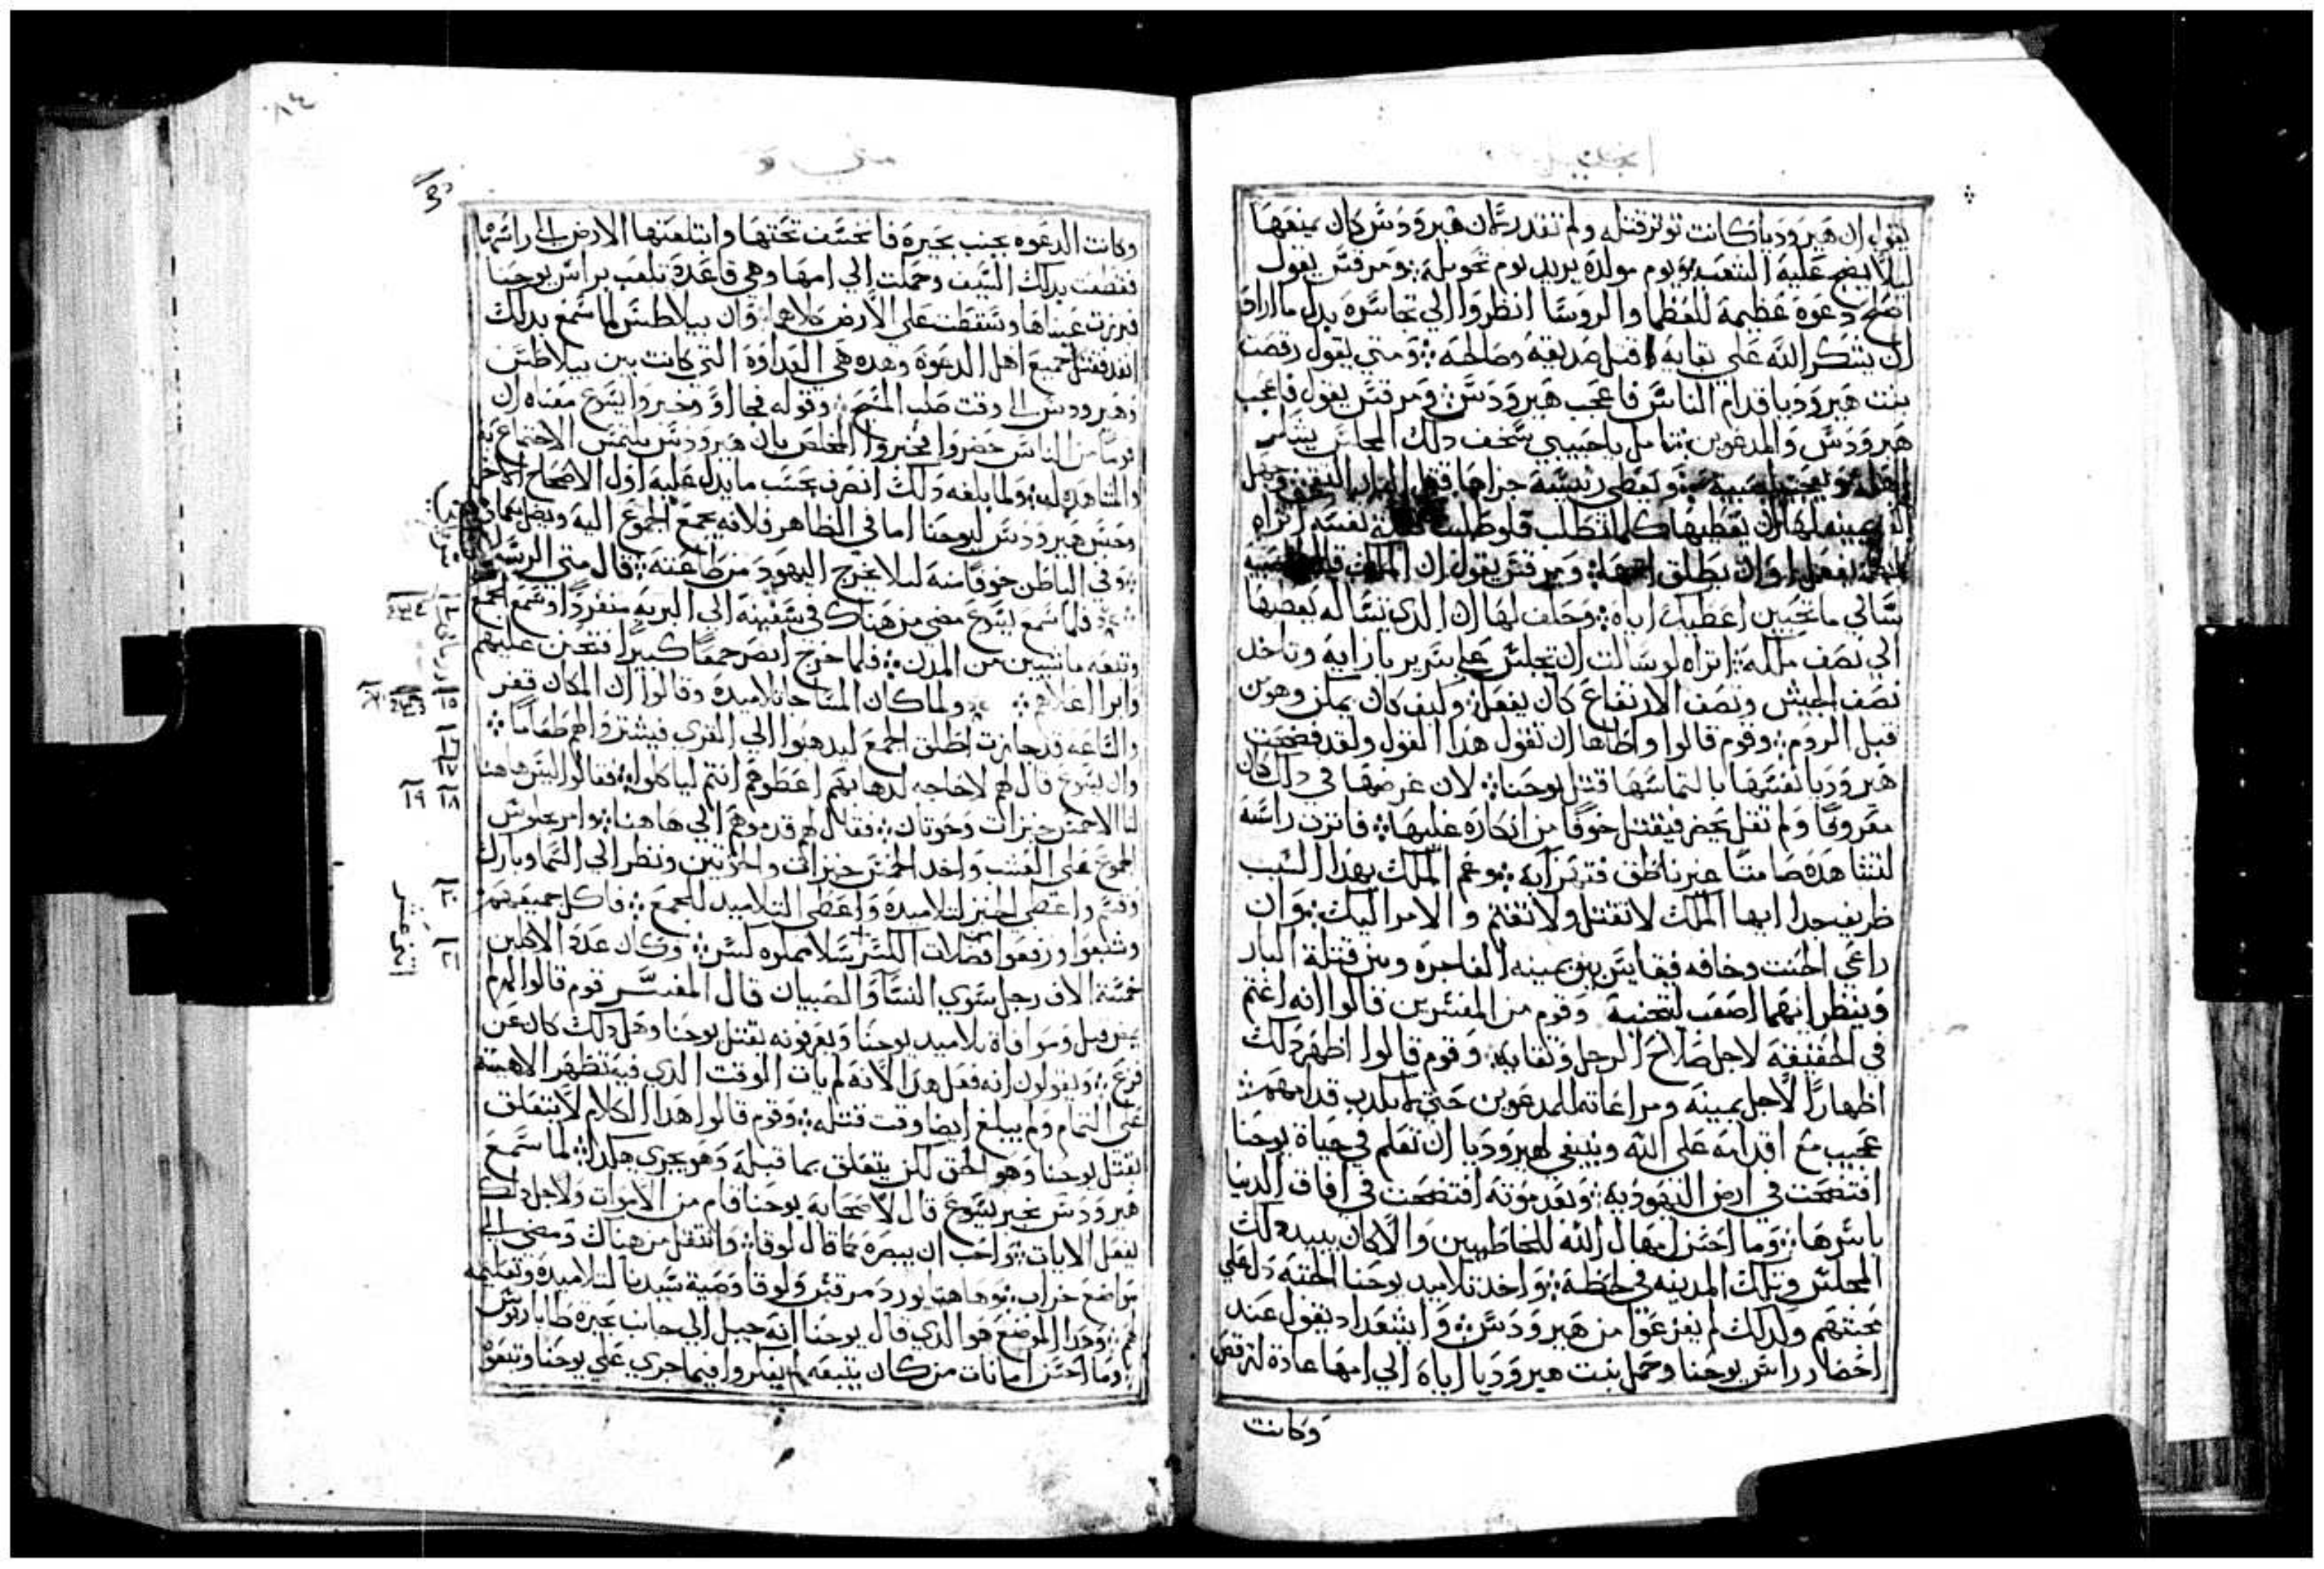 انجيل
يقول ان هيروديا كانت توثر قتله ولم تقدر لان هيرودس كان يمنعها
ليلا يضج عليه الشعب ويوم مولده يريد يوم تحويله ومرقس يقول
اصلح دعوة عظيمه للعظما والروسا انظروا الي تجاسره بدل ما اراد
ان يشكر الله علي بقايه قتل صديقه ومتي يقول رقصت
بنت هيروديا قدام الناس فاعجب هيرودس ومرقس يقول فاعجب
هيرودس والمدعوين تامل يا حبيبي سخف دلك المجلس
ان يعطيها كلما تطلب فلو طلبت نفسه اتراه
يفعل او ان يطلق ومرقس يقول ان الملك قال للصبيه
سالي ما تحبين اعطيك اياه وحلف لها ان الدي تساله يعطيها
الي نصف مملكه اتراه لو سالت ان تجلس علي سرير بازايه وتاخد
نصف الجيش ونصف الارتفاع كان يفعل وكيف كان يمكن وهو من
قبل الروم وقوم قالوا واطاها ان تقول هدا القول ولقد فضحت
هيروديا نفسها بالتماسها قتل يوحنا لان غرضها في دلك كان
معروفا ولم تقل يحضر فيقتل خوفا من انكاره عليها فاترت راسه
لتشاهده صامتا غير ناطق وغم الملك بهدا السبب
ظريف جدا ايها الملك لا تقتل ولا تغتم والامر اليك وان
راعي الحنث وخافه فقايس بين يمينه الفاجره وبين قتلة البار
وينظر ايهما اصعب وقوم من المفسرين قالوا انه اغتم
في الحقيقه لاجل صلاح الرجل ونقايه وقوم قالوا اظهر دلك
اظهارا لاجل يمينه ومراعاته للمدعوين حتي لا يكدب قدامهم
عجيب مع اقدامه علي الله وينبغي لهيروديا ان تعلم في حياة يوحنا
افتضحت في ارض اليهوديه وبعد موته افتضحت في افاق الدنيا
باسرها وما احسن امهال الله للخاطيين والا كان يبيد دلك
المجلس وتلك المدينه في لحظة واخد تلاميد يوحنا الجثه دل علي
محبتهم ولدلك لم يفزعوا من هيرودس يقول عند
احضار راس يوحنا وحمل بنت هيروديا اياه الي امها عادة لترقص
وكانت
متي
وكانت الدعوه بجنب بحيرة فانخسف تحتها وابتلعتها الارض الي راسها
فقطعت بدلك السيف وحملت الي امها وهي قاعدة تلعب براس يوحنا
فبرزت عيناها وسقطت علي الارض وان بيلاطس لما سمع بدلك
انفد فقتل جميع اهل الدعوة وهده هي العداوة التي كانت بين بيلاطس
وهيرودس الي وقت صلب المسيح وقوله فجااو وخبروا يسوع معناه ان
قوما من الناس حضروا يخبروا المخلص بان هيرودس يلتمس الاجتماع به
والمشاهده له ولما بلغه دلك انصرف بحسب ما يدل عليه اول الاصحاح الاخر
وحبس هيرودس ليوحنا اما في الظاهر فلانه يجمع الجموع اليه
وفي الباطن خوفا منه ليلا يخرج اليهود من طاعته قال متي الرسول
فلما سمع يسوع مضي من هناك في سفينه الي البريه منفردا وسمع الجمع
وتبعه ماشيين من المدن فلما خرج ابصر جمعا كبيرا فتحنن عليهم
وابرا اعلاهم ولما كان المسا جا تلاميده وقالوا ان المكان قفر
والساعه قد جازت اطلق الجمع ليدهبوا الي القري فيشتروا لهم طعاما
وان يسوع قال لهم لا حاجه لدهابهم اعطوهم انتم لياكلوا فقالوا ليس هاهنا
لنا الا خمس خبزات وحوتان فقال لهم قدموهم الي هاهنا وامر بجلوس
الجموع علي العشب واخد الخمس خبزات والحوتين ونظر الي السما وبارك
وقسم واعطي الخبز لتلاميده واعطي التلاميد للجمع فاكل جميعهم
وشبعوا ورفعوا فضلات الكسر وكان عدد الاكلين
خمسة الاف رجل سوي النسا والصبيان قال المفسر قوم قالوا
تلاميد يوحنا ويعرفونه بقتل يوحنا وحل دلك كان عن
فزع ويقولون انه فعل هدا لانه لم يات الوقت الدي فيه تظهر الاهيته
علي التمام ولم يبلغ ايضا وقت قتله وقوم قالوا هدا الكلام لا يتعلق
بقتل يوحنا وهو الحق لكن يتعلق بما قبله وهو يجري هكدا لما سمع
هيرودس بخبر يسوع قال لاصحابه يوحنا قام من الاموات ولاجل دلك
يفعل الايات واحب ان يبصره كما قال لوقا وانتقل من هناك ومضي الي
مواضع خراب وهاهنا يورد مرقس ولوقا وصية سيدنا لتلاميده وتعليمه
لهم وهدا الموضع هو الدي قال يوحنا انه جبل الي جانب بحيرة طاباريوس
وما احسن امانات من كان يتبعه لم يفكروا فيما جري علي يوحنا وتبعوه
١٥
١٨ ١٩
٢٠
٢١